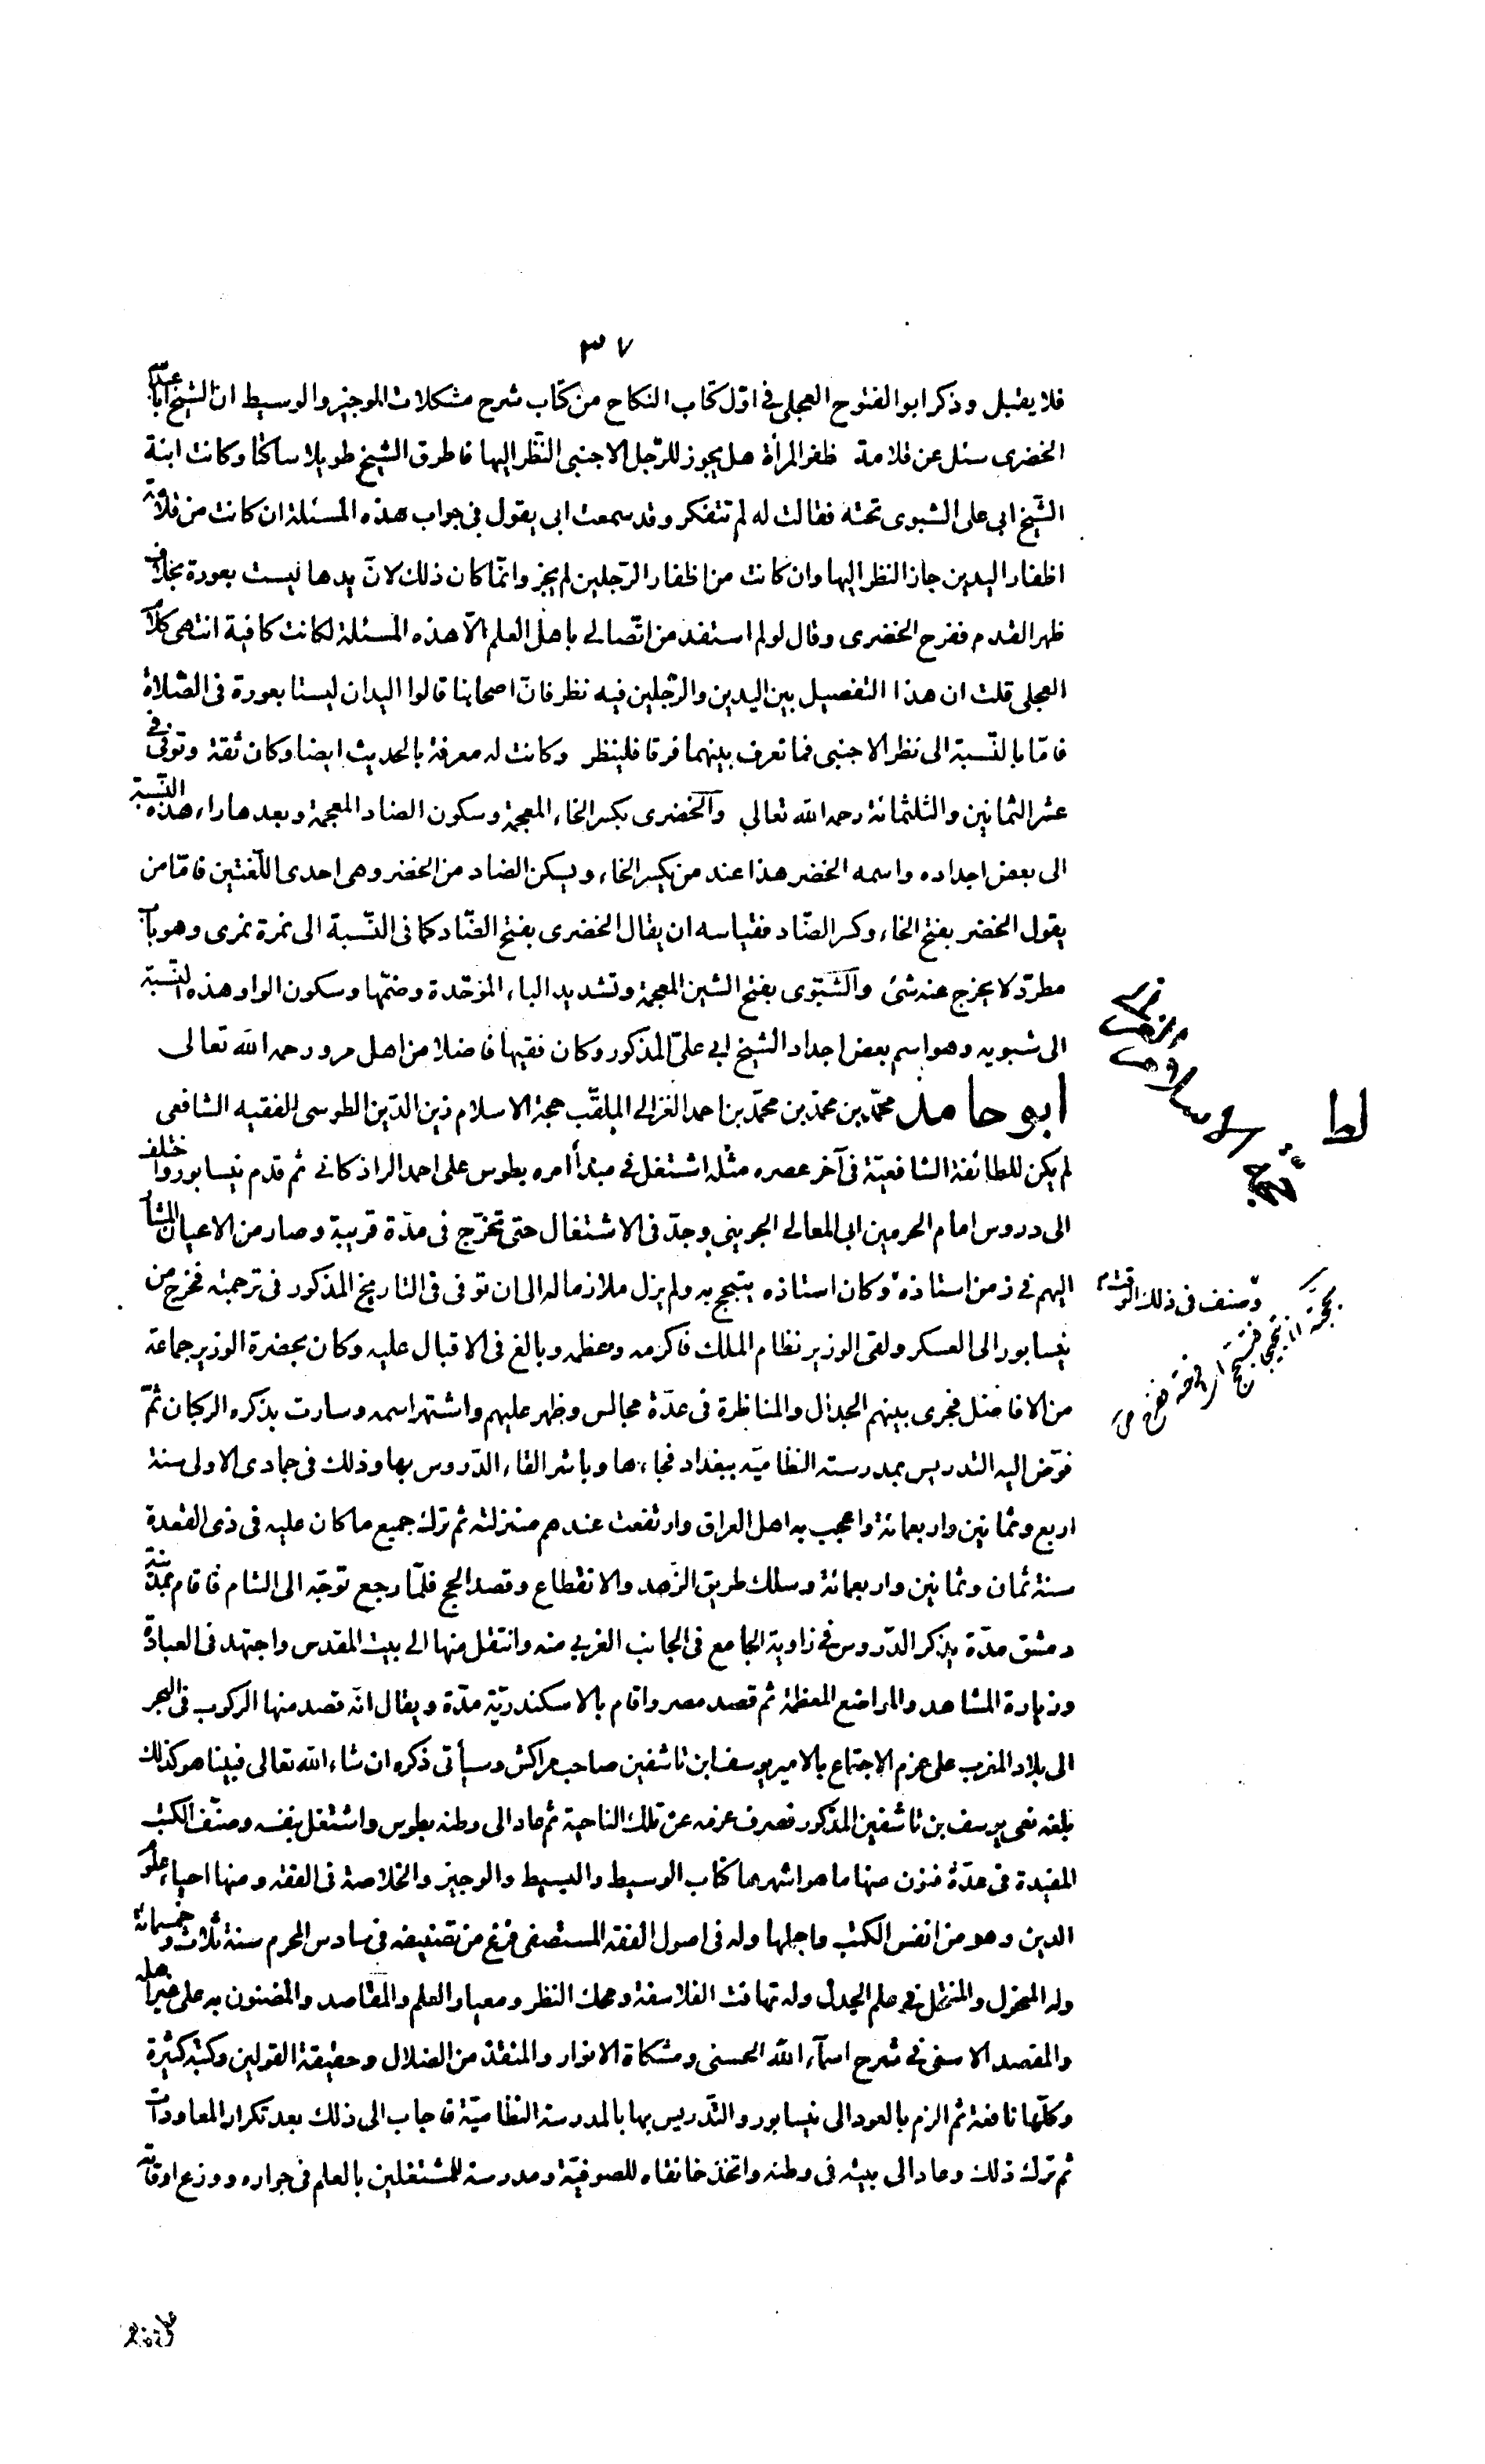 ٣٧
فلا يقبل وذكر ابو الفتوح العجلى فى اوّل كتاب النكاح من كتاب شرح مشكلات الموجيز والوسيط ان الشيخ ابا عبد الله
الخضرى سئل عن قلامة ظفر المرأة هل يجوز للرّجل الاجنبى النّظر اليها فاطرق الشيخ طويلا ساكتا وكانت ابنة
الشّيخ ابى على الشبوى تحته فقالت له لم تتفكر وقد سمعت ابى يقول فى جواب هذه المسئلة ان كانت من قلامة
اظفار اليدين جاز النظر اليها وان كانت من اظفار الرّجلين لم يجز وانّما كان ذلك لانّ يدها ليست بعورة بخلاف
ظهر القدم ففرح الخضرى وقال لو لم استفد من اتّصالى باهل العلم الّا هذه المسئلة لكانت كافية انتهى كلام
العجلى قلت ان هذا التفصيل بين اليدين والرّجلين فيه نظر فانّ اصحابنا قالوا اليدان ليستا بعورة فى الصّلاة
فامّا بالنّسبة الى نظر الاجنبى فما نعرف بينهما فرقا فلينظر وكانت له معرفة بالحديث ايضا وكان ثقة وتوفّى فى
عشر الثمانين والثلثمائة رحمه الله تعالى والخضرى بكسر الخاء المعجمة وسكون الضاد المعجمة وبعدها راء هذه النّسبة
الى بعض اجداده واسمه الخضر هذا عند من يكسر الخاء ويسكن الضاد من الخضر وهى احدى اللّغتين فامّا من
يقول الخضر بفتح الخاء وكسر الضّاد فقياسه ان يقال الخضرى بفتح الضّاد كما فى النّسبة الى نمرة نمرى وهو باب
مطرّد لا يخرج عنه شئ والشّبّوى بفتح الشين المعجمة وتشديد الباء الموّحدة وضمّها وسكون الواو هذه النّسبة
الى شبويه وهو اسم بعض اجداد الشيخ ابى علىّ المذكور وكان فقيها فاضلا من اهل مرو رحمه الله تعالى
ابو حامد محمّد بن محمّد بن محمّد بن احمد الغزالى الملقّب حجة الاسلام زين الدّين الطوسى الفقيه الشافعى
لط
لم يكن للطائفة الشافعيّة فى آخر عصره مثله اشتغل فى مبتدأ امره بطوس على احمد الراذكانى ثم قدم نيسابور واختلف
الى دروس امام الحرمين ابى المعالى الجوينى وجدّ فى الاشتغال حتى تخرّج فى مدّة قريبة وصار من الاعيان المشار
اليهم فى زمن استاذه وكان استاذه يتبجح به ولم يزل ملازما له الى ان توفى فى التاريخ المذكور فى ترجمته فخرج من
وصنف فى ذلك الوقت
نيسابور الى العسكر ولقى الوزير نظام الملك فاكرمه وعظمه وبالغ فى الاقبال عليه وكان بحضرة الوزير جماعة
من الافاضل فجرى بينهم الجدال والمناظرة فى عدّة مجالس وظهر عليهم واشتهر اسمه وسارت بذكره الركبان ثمّ
فوّض اليه التدريس بمدرسته النظاميّه ببغداد فجاءها وباشر القاء الدّروس بها وذلك فى جمادى الاولى سنة
اربع وثمانين واربعمائة واعجب به اهل العراق وارتفعت عندهم منزلته ثم ترك جميع ما كان عليه فى ذى القعدة
سنة ثمان وثمانين واربعمائة وسلك طريق الزّهد والانقطاع وقصد الحج فلمّا رجع توجّه الى الشام فاقام بمدينة
دمشق مدّة يذكر الدّروس فى زاوية الجامع فى الجانب الغربى منه وانتقل منها الى بيت المقدس واجتهد فى العبادة
وزيارة المشاهد والمواضع المعظمة ثم قصد مصر واقام بالاسكندريّة مدّة ويقال انّه قصد منها الركوب فى البحر
الى بلاد المغرب على عزم الاجتماع بالامير يوسف ابن تاشفين صاحب مراكش وسيأتى ذكره ان شاء الله تعالى فبينا هو كذلك
بلغه نعى يوسف بن تاشفين المذكور فصرف عزمه عن تلك الناحية ثم عاد الى وطنه بطوس واشتغل بنفسه وصنّف الكتب
المفيدة فى عدّة فنون منها ما هو اشهرها كتاب الوسيط والبسيط والوجيز والخلاصة فى الفقه ومنها احياء علوم
الدين وهو من انفس الكتب واجلها وله فى اصول الفقه المستصفى فرغ من تصنيفه فى سادس المحرم سنة ثلاث وخمسمائة
وله المنخول والمنتحل فى علم الجدل وله تهافت الفلاسفة ومحك النظر ومعيار العلم والمقاصد والمضنون به على غير اهله
والمقصد الاسنى فى شرح اسمآء الله الحسنى ومشكاة الانوار والمنقذ من الضلال وحقيقة القولين وكتبه كثيرة
وكلّها نافعة ثم الزم بالعود الى نيسابور والتّدريس بها بالمدرسة النظاميّة فاجاب الى ذلك بعد تكرار المعاودات
ثم ترك ذلك وعاد الى بيته فى وطنه واتخذ خانقاه للصوفيّة ومدرسة للمشتغلين بالعلم فى جواره ووزع اوقاته